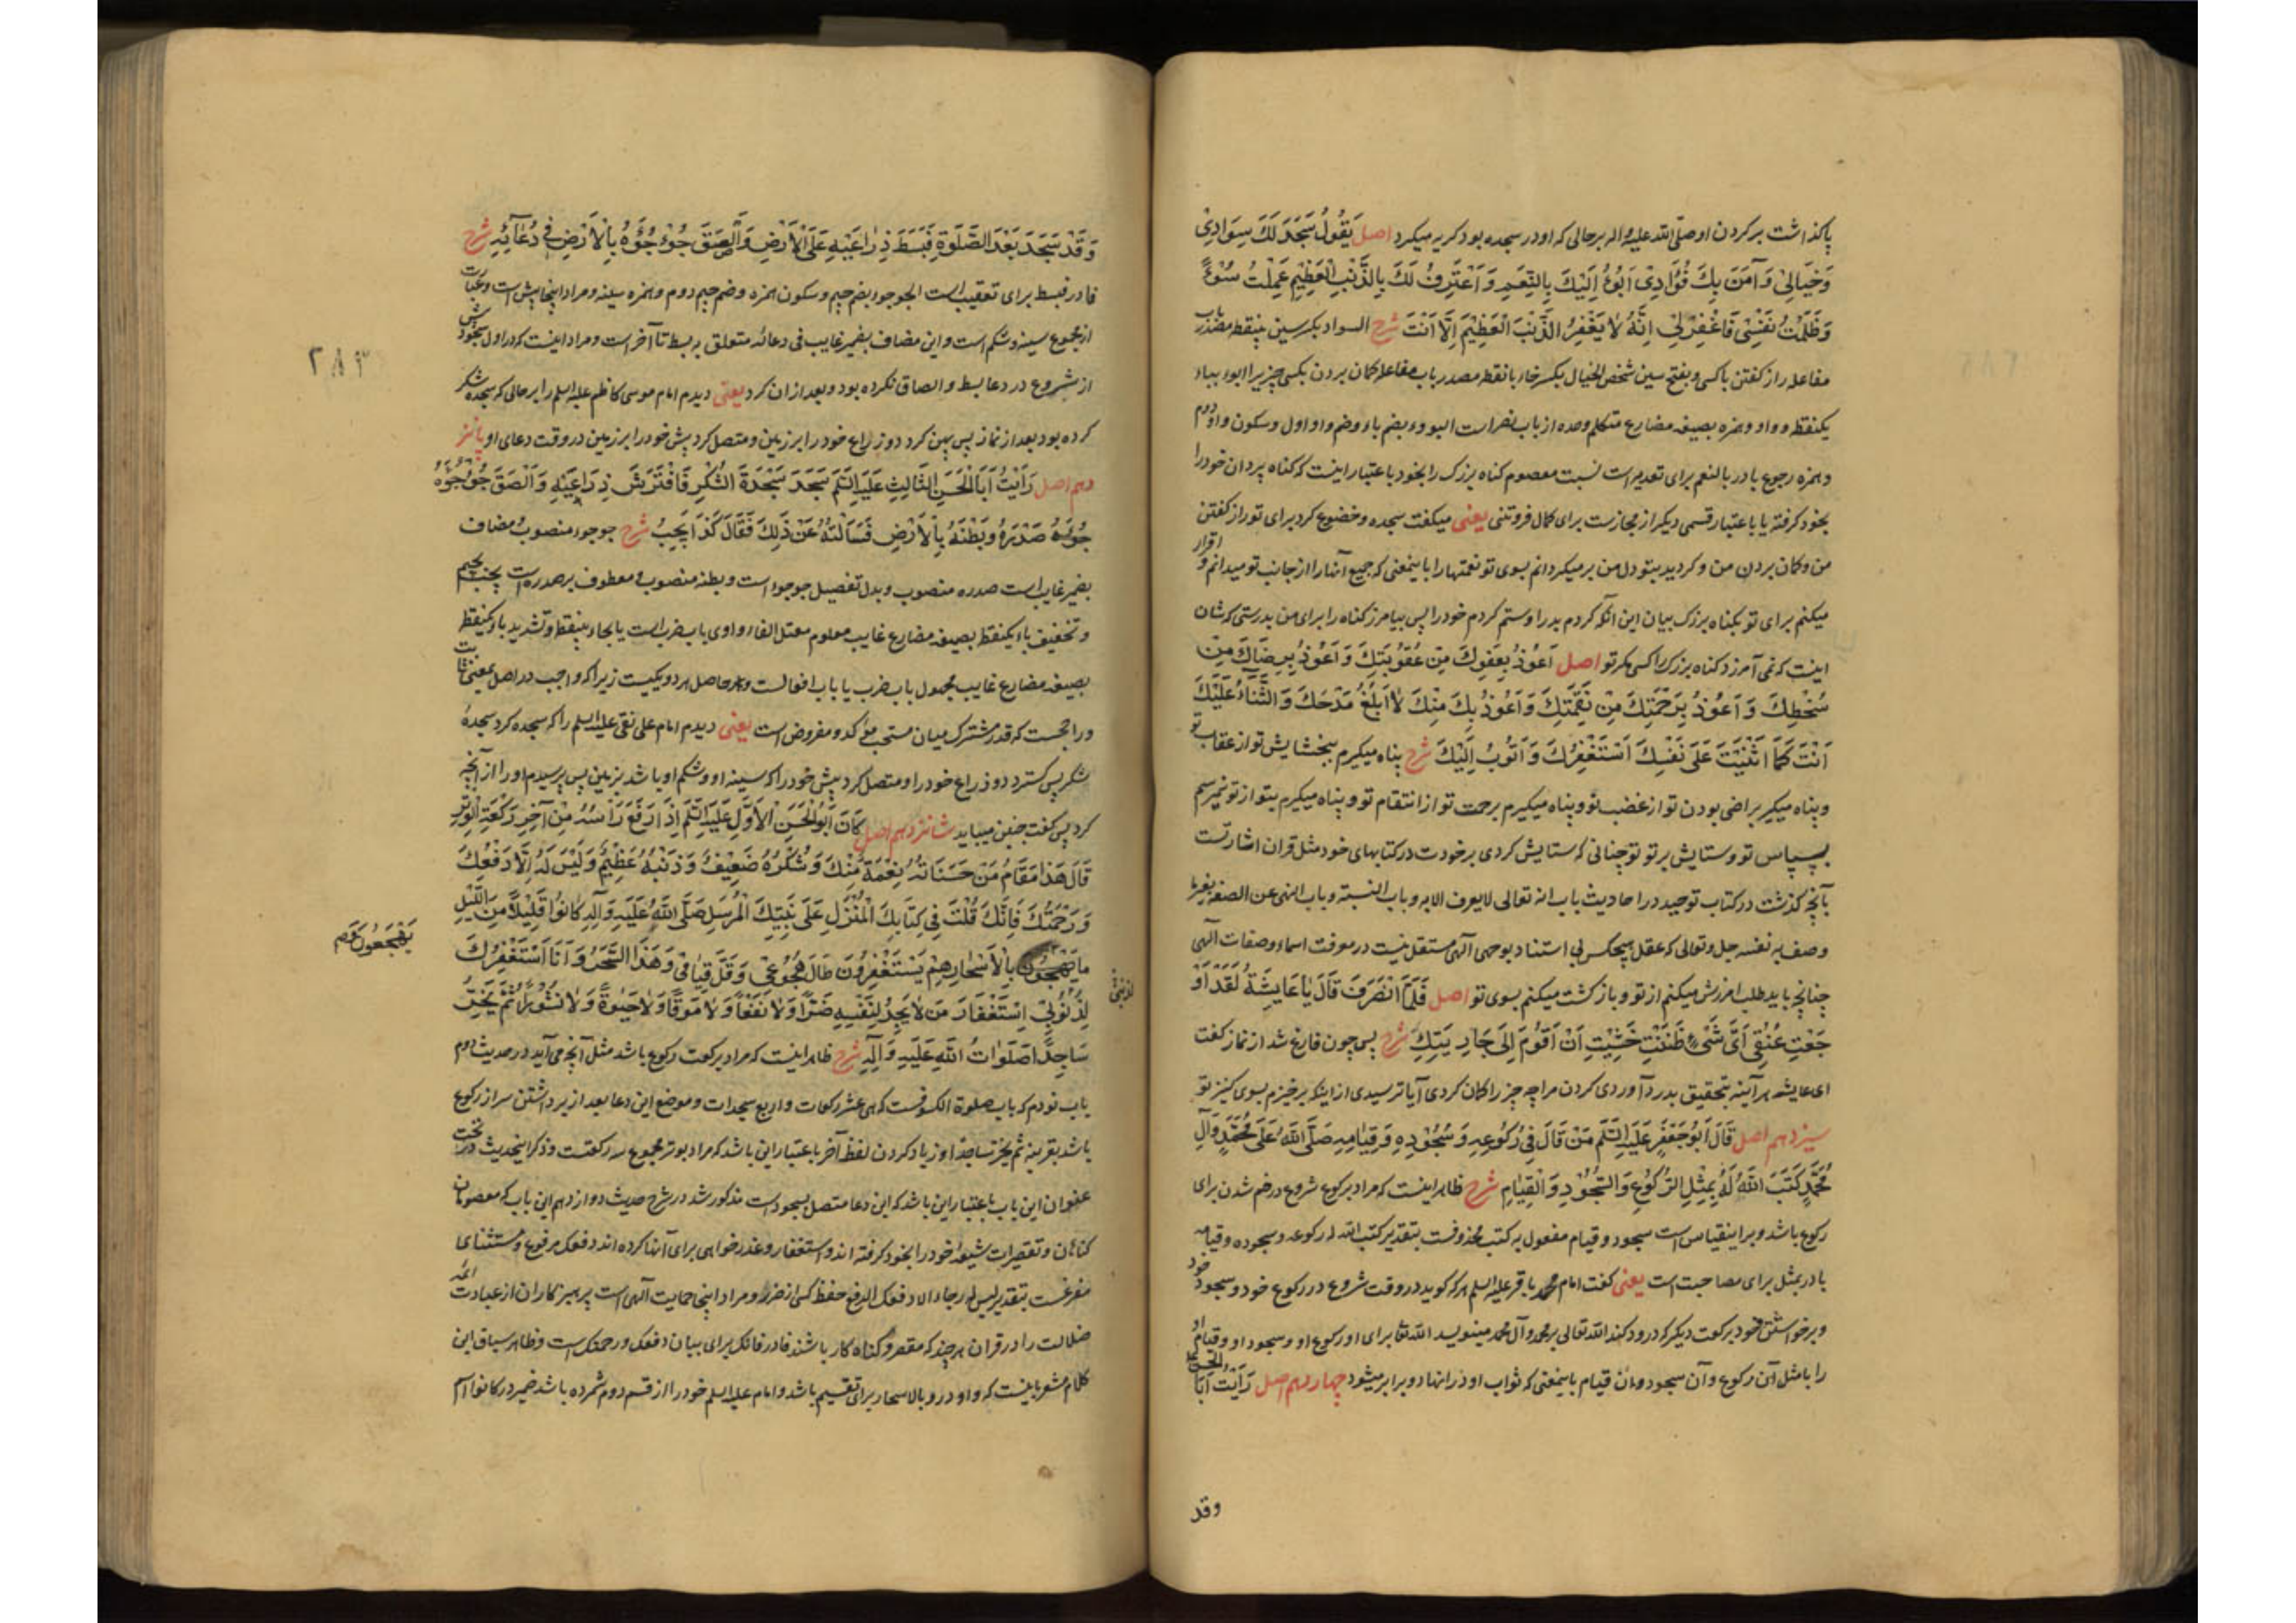 پا کذاشت بر کردن او صلّی الله علیه واله بر حالی که او در سجده بود کریه میکرد اصل یَقُولُ سَجَدَ لَكَ سِوَادِیْ
وَخَیَالِیْ وَآمَنَ بِكَ فُؤَادِیْ اَبُوْءُ اِلَیْكَ بِالنِّعَمِ وَاَعْتَرِفُ لَكَ بِالذَّنْبِ الْعَظِیْمِ عَمِلْتُ سُوْءً
وَظَلَمْتُ نَفْسِیْ فَاغْفِرْ لِیْ اِنَّهُ لَا یَغْفِرُ الذَّنْبَ الْعَظِیْمَ اِلَّا اَنْتَ شرح السواد بکسر سین بینقطه مصدر باب
مفاعله راز کفتن با کسی و بفتح سین شخص الخیال بکسر خاء بانقطه مصدر باب مفاعله کمان بردن بکسی چیزیرا ابوء بباء
یکنقطه و واو و همزه بصیغه مضارع متکلم وحده از باب نصر است البووء بضم باء و ضم واو اول و سکون واو دوم
و همزه رجوع با در بالنعم برای تعدیه است نسبت معصوم کناه بزرک را بخود باعتبار اینست که کناه پیروان خود را
بخود کرفته یا باعتبار قسمی دیکر از مجازست برای کمال فروتنی یعنی میکفت سجده و خضوع کرد برای تو راز کفتن
من و کمان بردن من و کروید بتو دل من بر میکردانم بسوی تو نعمتها را باینمعنی که جمیع آنها را از جانب تو میدانم و اقرار
میکنم برای تو بکناه بزرک بیان این آنکه کردم بد را و ستم کردم خود را پس بیامرز کناه را برای من بدرستی که شان
اینست که نمی آمرزد کناه بزرک را کسی مکر تو اصل اَعُوْذُ بِعَفْوِكَ مِنْ عُقُوْبَتِكَ وَاَعُوْذُ بِرِضَاكَ مِنْ
سَخَطِكَ وَاَعُوْذُ بِرَحْمَتِكَ مِنْ نِقْمَتِكَ وَاَعُوْذُ بِكَ مِنْكَ لَا اَبْلُغُ مَدْحَكَ وَالثَّنَاءَ عَلَیْكَ
اَنْتَ كَمَا اَثْنَیْتَ عَلَی نَفْسِكَ اَسْتَغْفِرُكَ وَاَتُوْبُ اِلَیْكَ شرح پناه میکیرم ببخشایش تو از عقاب تو
و پناه میکیرم براضی بودن تو از غضب تو و پناه میکیرم برحمت تو از انتقام تو و پناه میکیرم بتو از تو نمیرسم
بسپاس تو و ستایش بر تو تو چنانی که ستایش کردی بر خودت در کتابهای خود مثل قران اشارتست
بآنچه کذشت در کتاب توحید در احادیث باب انه تعالی لا یعرف الا به و باب النسبة و باب النهی عن الصفة بغیر ما
وصف به نفسه جل و تعالی که عقل هیچکس بی استناد بوحی الهی مستقل نیست در معرفت اسماء و صفات الهی
چنانچه باید طلب امرزش میکنم از تو و باز کشت میکنم بسوی تو اصل فَلَمَّا انْصَرَفَ قَالَ یَا عَایِشَةُ لَقَدْ اَوْ
جَعْتِ عُنُقِیْ اَیَّ شَیْءٍ ظَنَنْتِ خَشِیْتِ اَنْ اَقُوْمَ اِلَی جَارِیَتِكِ شرح پس چون فارغ شد از نماز کفت
ای عایشه هر آینه بتحقیق بدرد آوردی کردن مرا چه چیز را کمان کردی آیا ترسیدی از اینکه برخیزم بسوی کنیز تو
سیزدهم اصل قَالَ اَبُوْ جَعْفَرٍ عَلَیْهِ السَّلَمُ مَنْ قَالَ فِیْ رُكُوْعِهِ وَسُجُوْدِهِ وَقِیَامِهِ صَلَّی اللّٰهُ عَلَی مُحَمَّدٍ وَآلِ
مُحَمَّدٍ كَتَبَ اللّٰهُ لَهُ بِمِثْلِ الرُّكُوْعِ وَالسُّجُوْدِ وَالْقِیَامِ شرح ظاهر اینست که مراد برکوع شروع در خم شدن برای
رکوع باشد و بر اینقیاس است سجود و قیام مفعول به کتب محذوفست بتقدیر کتب الله له رکوعه و سجوده و قیامه
با در بمثل برای مصاحبت است یعنی کفت امام محمد باقر علیه السلم هر که کوید در وقت شروع در رکوع خود و سجود خود
و برخواستن خود برکعت دیکر که درود کند الله تعالی بر محمد و آل محمد مینویسد الله تعا برای او رکوع او و سجود او و قیام او
را با مثل آن رکوع و آن سجود و مان قیام باینمعنی که ثواب او در انها دو برابر میشود چهاردهم اصل رَاَیْتُ اَبَا الحسن ع
وقد
وَقَدْ سَجَدَ بَعْدَ الصَّلٰوةِ فَبَسَطَ ذِرَاعَیْهِ عَلَی الْاَرْضِ وَاَلْصَقَ جُؤْجُؤَهُ بِالْاَرْضِ فِیْ دُعَآئِهِ شرح
فا در فبسط برای تعقیب است الجوجوء بضم جیم و سکون همزه و ضم جیم دوم و همزه سینه و مراد اینجا پیش است و عبارت
از مجموع سینه و شکم است و این مضاف بضمیر غایب فی دعائه متعلق به بسط تا آخر است و مراد اینست که در اول سجودش
از شروع در دعا بسط و الصاق نکرده بود و بعد از ان کرد یعنی دیدم امام موسی کاظم علیه السلم را بر حالی که سجده شکر
کرده بود بعد از نماز پس پهن کرد دو زراع خود را بر زمین و متصل کرد پیش خود را بر زمین در وقت دعای او پانز
دهم اصل رَاَیْتُ اَبَا الْحَسَنِ الثَّالِثِ عَلَیْهِ السَّلَمُ سَجَدَ سَجْدَةَ الشُّكْرِ فَافْتَرَشَ ذِرَاعَیْهِ وَاَلْصَقَ جُؤْجُؤَهُ
صَدْرَهُ وَبَطْنَهُ بِالْاَرْضِ فَسَاَلْتُهُ عَنْ ذٰلِكَ فَقَالَ كَذَا یَجِبُ شرح جوجوء منصوب و مضاف
بضمیر غایب است صدره منصوب و بدل تفصیل جوجوء است و بطنه منصوب و معطوف بر صدره است یجب بجیم
و تخفیف باء یکنقطه بصیغه مضارع غایب معلوم معتل الفاء واوی باب ضرب است یا بحاء بینقطه و تشدید باء یکنقطه
بصیغه مضارع غایب مجهول باب ضرب یا باب افعالست و حاصل هر دو یکیست زیرا که واجب در اصل بمعنی ثابت
و راجحست که قدر مشترک میان مستحب مؤکد و مفروض است یعنی دیدم امام علی نقی علیه السلم را که سجده کرد سجدهٔ
شکر پس کسترد دو ذراع خود را و متصل کرد پیش خود را که سینه او و شکم او باشد بزمین پس پرسیدم او را از آنچه
کرد پس کفت چنین میباید شانزدهم اصل كَانَ اَبُو الْحَسَنِ الْاَوَّلُ عَلَیْهِ السَّلَمُ اِذَا رَفَعَ رَأْسَهُ مِنْ آخِرِ رَكْعَةِ الْوِتْرِ
قَالَ هٰذَا مَقَامُ مَنْ حَسَنَاتُهُ نِعْمَةٌ مِنْكَ وَشُكْرُهُ ضَعِیْفٌ وَذَنْبُهُ عَظِیْمٌ وَلَیْسَ لَهُ اِلَّا دَفْعُكَ
وَرَحْمَتُكَ فَاِنَّكَ قُلْتَ فِیْ كِتَابِكَ الْمُنْزَلِ عَلَی نَبِیِّكَ الْمُرْسَلِ صَلَّی اللّٰهُ عَلَیْهِ وَآلِهِ كَانُوْا قَلِیْلًا مِنَ اللَّیْلِ
مَا یَهْجَعُوْنَ بِالْاَسْحَارِ هُمْ یَسْتَغْفِرُوْنَ طَالَ هُجُوْعِیْ وَقَلَّ قِیَامِیْ وَهٰذَا السَّحَرُ وَاَنَا اَسْتَغْفِرُكَ
یَهْجَعُوْنَ وَ
لِذُنُوْبِیْ اِسْتِغْفَارَ مَنْ لَا یَجِدُ لِنَفْسِهِ ضَرًّا وَلَا نَفْعًا وَلَا مَوْتًا وَلَا حَیٰوةً وَلَا نُشُوْرًا ثُمَّ یَخِرُّ
سَاجِدًا صَلَوَاتُ اللّٰهِ عَلَیْهِ وَآلِهِ شرح ظاهر اینست که مراد برکعت رکوع باشد مثل آنچه می آید در حدیث دوم
باب نودم که باب صلوة الکسوفست که هی عشر رکعات و اربع سجدات و موضع این دعا بعد از برداشتن سر از رکوع
باشد بقرینه ثم یخر ساجدا و زیاد کردن لفظ آخر باعتبار این باشد که مراد بوتر مجموع سه رکعتست و ذکر اینحدیث در تحت
عنوان این باب باعتبار این باشد که این دعا متصل بسجود است مذکور شد در شرح حدیث دوازدهم این باب که معصومان
کناهان و تقصیرات شیعهٔ خود را بخود کرفته اند و استغفار و عذر خواهی برای آنها کرده اند دفعک مرفوع و مستثنای
مفرغست بتقدیر لیس له رجاء الا دفعک الدفع حفظ کسی از ضرر و مراد اینجا حمایت الهی است پرهیزکاران از عبادت ائمه
ضلالت را در قران هر چند که مقصر و کناه کار باشند فا در فانک برای بیان دفعک و رحمتک است و ظاهر سیاق این
کلام مشعر باینست که واو در و بالاسحار برای تقسیم باشد و امام علیه السلم خود را از قسم دوم شمرده باشد ضمیر در کانوا اسم
۲۸۳